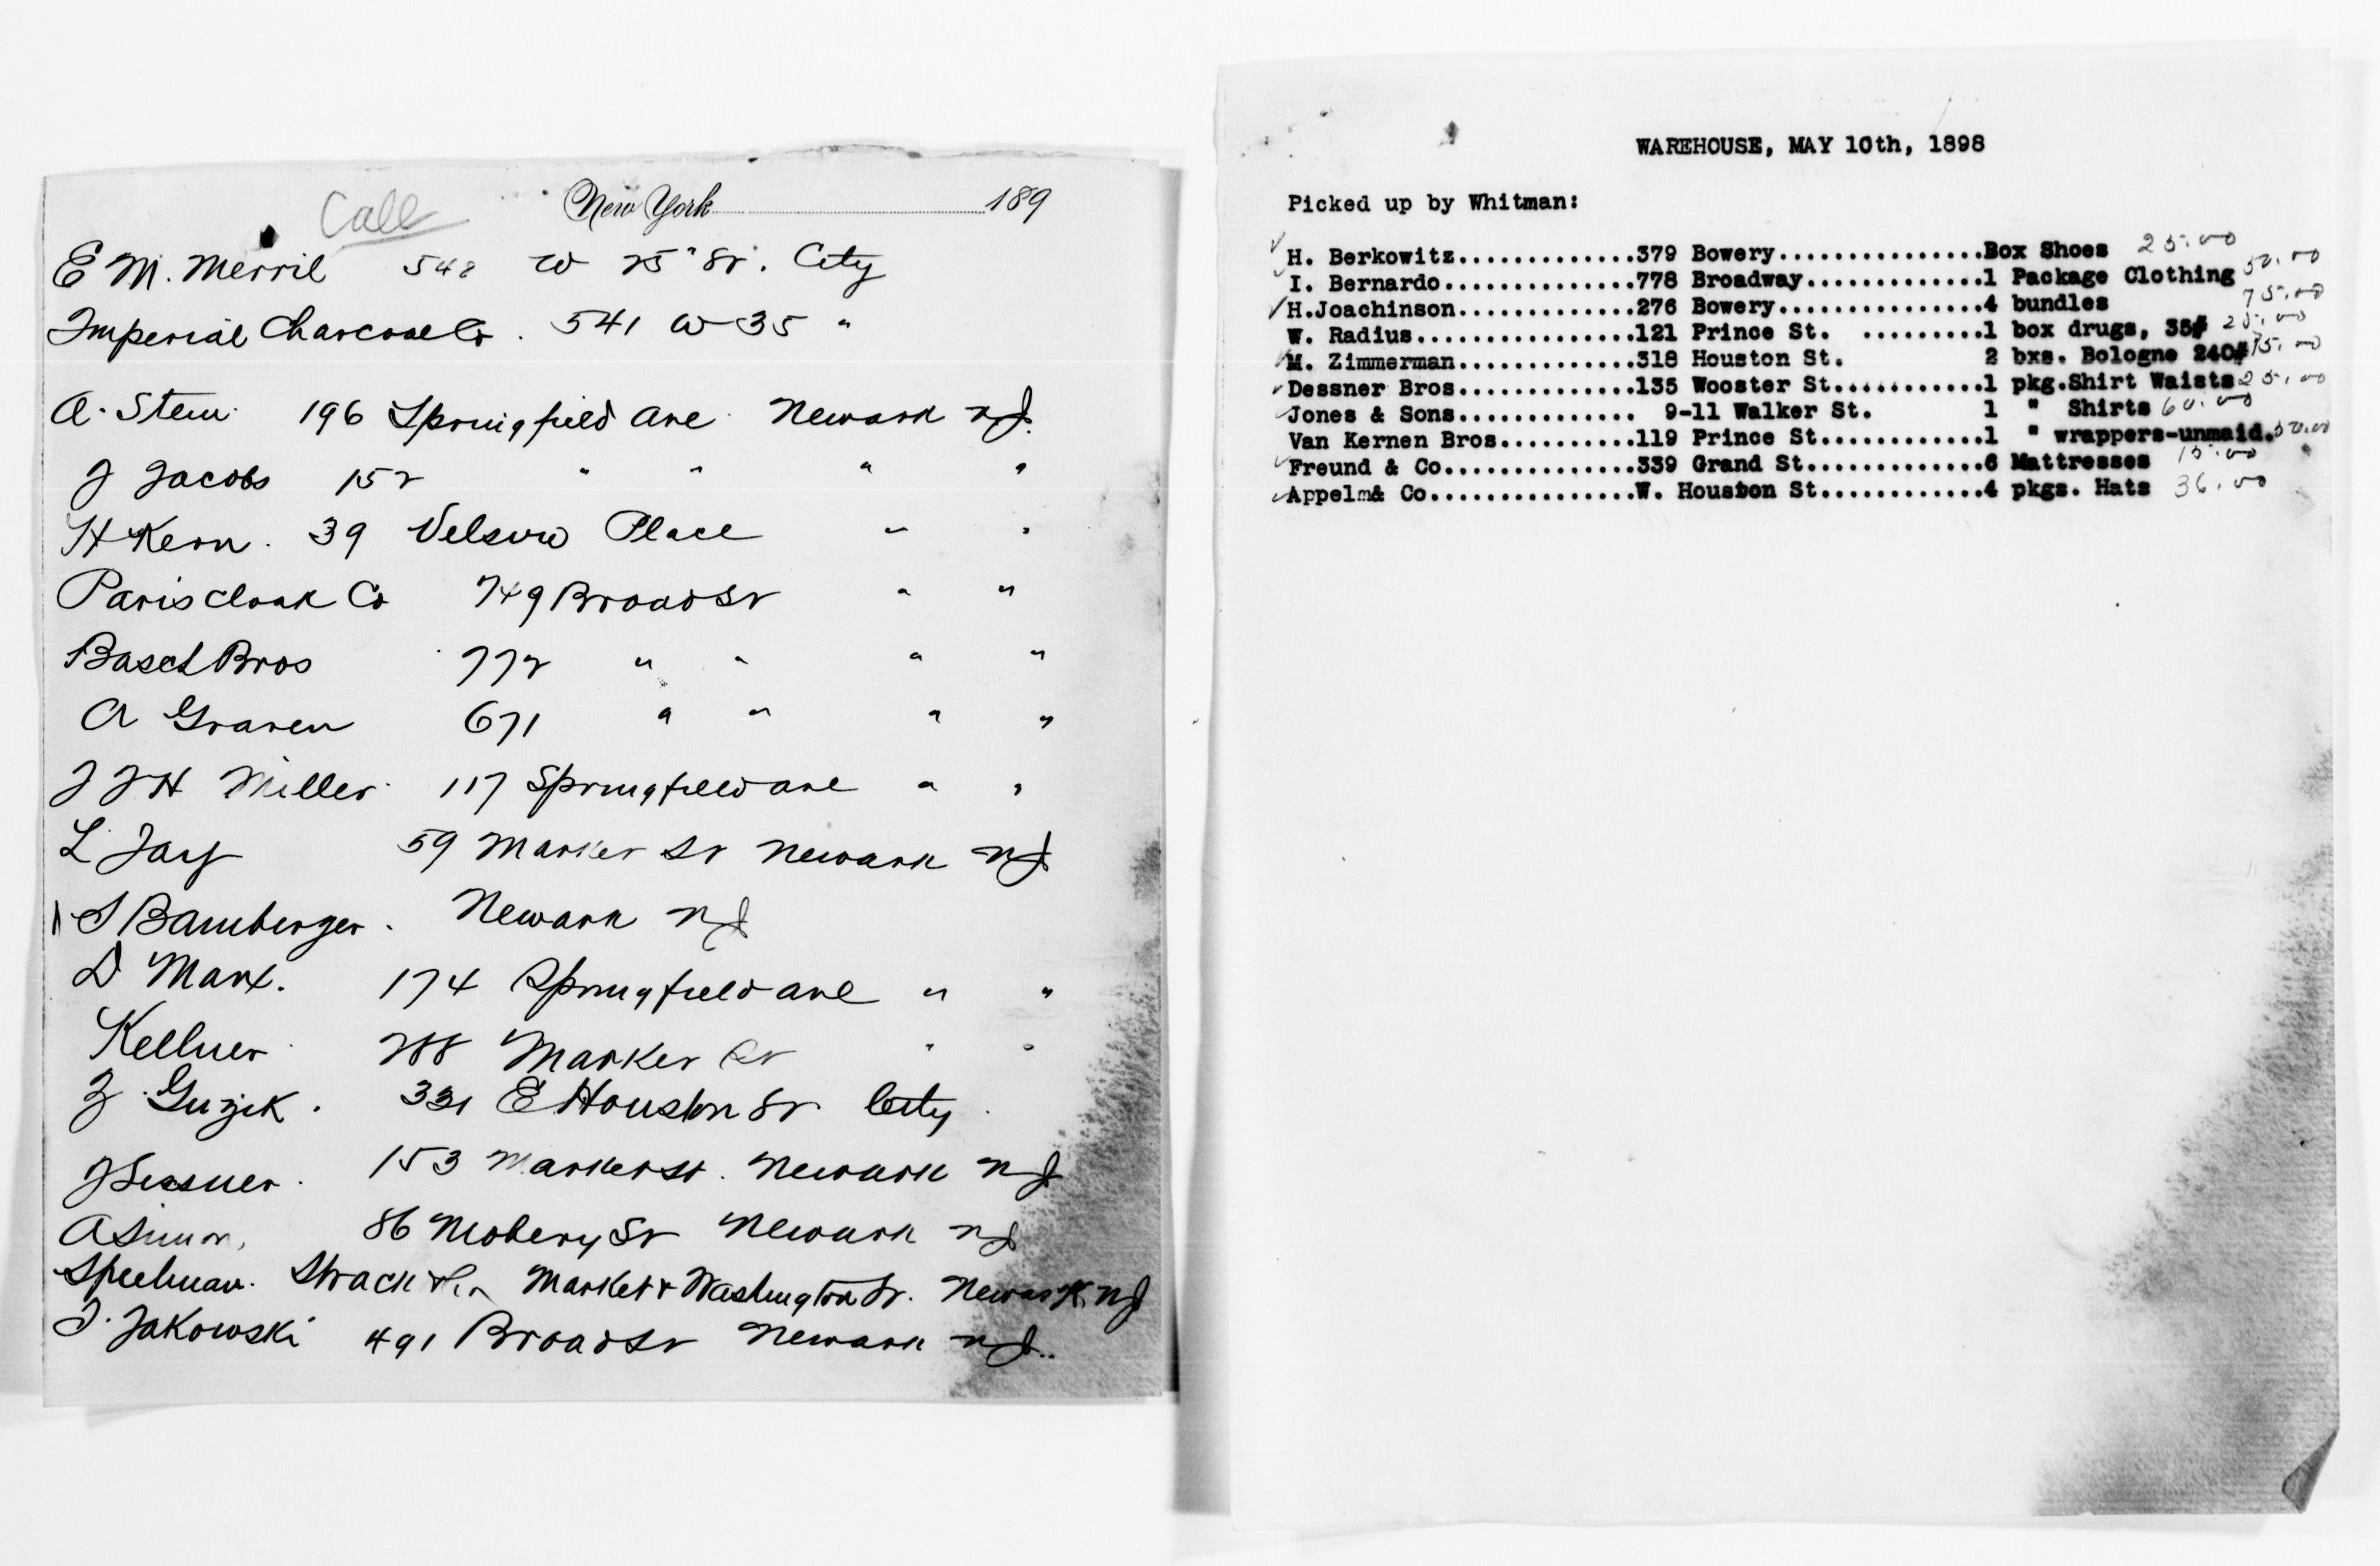 Call
New York 189
E M. Merril 542 W 25" St. City
Imperial Charcoal Co. 541 W 35 "
A. Stern 196 Springfield Ave. Newark NJ.
J Jacobs 152 " " " "
H Kern. 39 Place " "
Paris Cloak Co 749 Broad St " "
Basch Bros 772 " " " "
A Graven 671 " " " "
J J H Miller 117 Springfield Ave " "
L Jay 59 Market St Newark NJ
S Bamberger. Newark NJ
D Marx. 174 Springfield Ave " "
Kellner 288 Market St " "
Z Guzik. 331 E Houston St City
J 153 Market St. Newark NJ
A Simon, 86 St Newark NJ
Speelman. Strack Market & Washington St. Newark NJ
J. Jakowski 491 Broad St Newark NJ..
WAREHOUSE, MAY 10th, 1898
Picked up by Whitman:
✓ H. Berkowitz..............379 Bowery...............Box Shoes 25.00
✓ I. Bernardo...............778 Broadway.............1 Package Clothing 50.00
✓ H.Joachinson..............276 Bowery...............4 bundles 75.00
W. Radius................121 Prince St. .........1 box drugs, 35# 25.00
✓ M. Zimmerman..............318 Houston St. 2 bxs. Bologne 240# 15.00
✓ Dessner Bros..............135 Wooster St...........1 pkg.Shirt Waists 25.00
✓ Jones & Sons............. 9-11 Walker St. 1 " Shirts 60.00
Van Kernen Bros..........119 Prince St............1 " wrappers-unmaid. 50.00
✓ Freund & Co...............339 Grand St.............6 Mattresses 15.00
✓ Appelm& Co................W. Houston St............4 pkgs. Hats 36.00